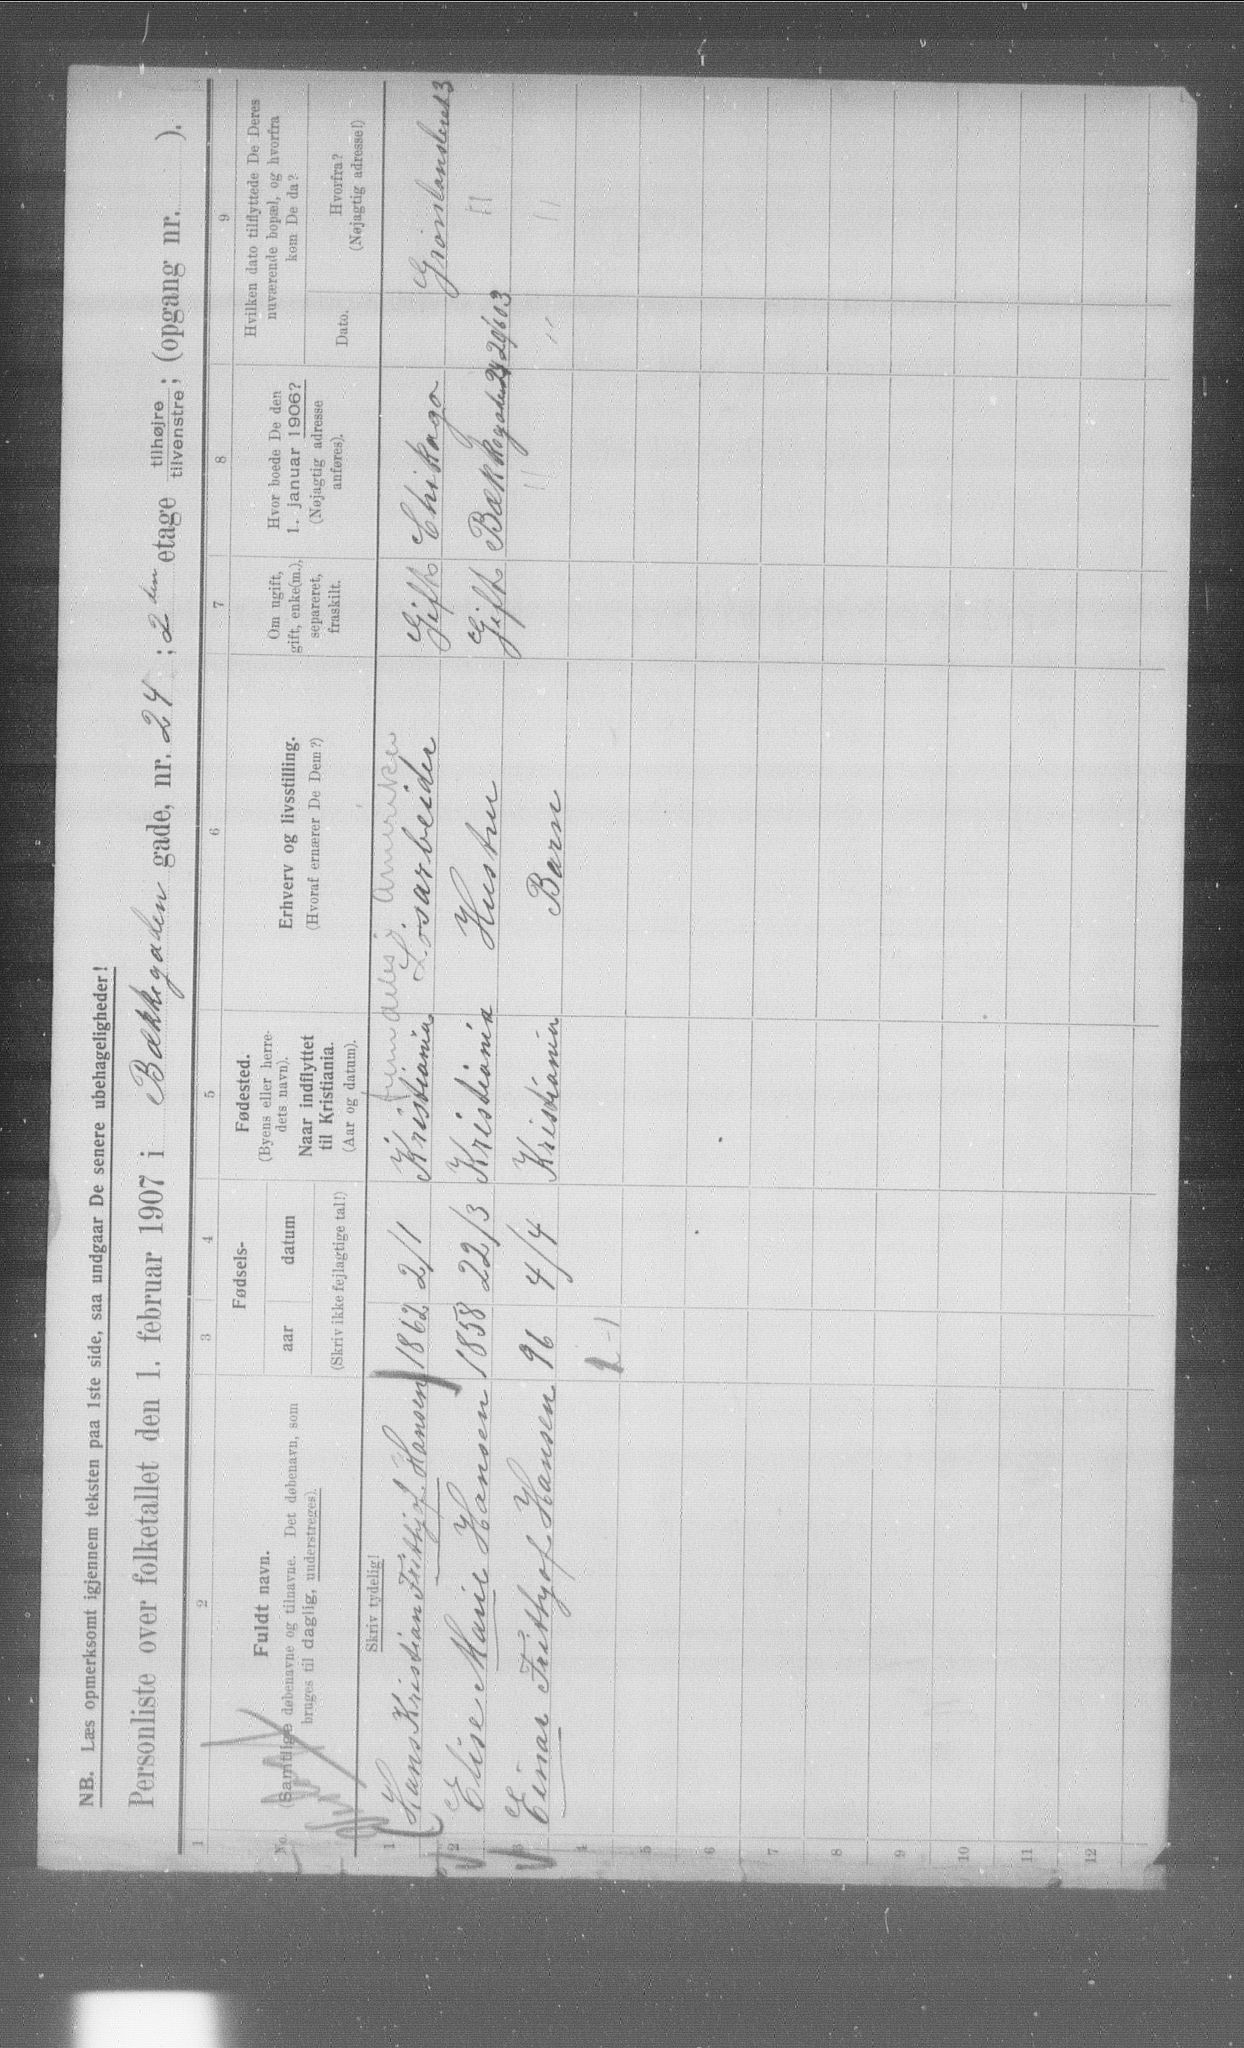 NB. Læs opmerksomt igjennem teksten paa 1ste side, saa undgaar De senere ubehageligheder!
Personliste over folketallet den 1. februar 1907 i Bækkegaden gade, nr. 24; 2den etage tilhøjre tilvenstre; (opgang nr. ).
1 2 3 4 5 6 7 8 9
No. Fuldt navn. (Samtlige døbenavne og tilnavne. Det døbenavn, som bruges til daglig, understreges).
Fødsels-
aar datum
(Skriv ikke fejlagtige tal!)
Fødested. (Byens eller herredets navn). Naar indflyttet til Kristiania. (Aar og datum).
Erhverv og livsstilling. (Hvoraf ernærer De Dem?)
Om ugift, gift, enke(m.), separeret, fraskilt.
Hvor boede De den 1. januar 1906? (Nøjagtig adresse anføres).
Hvilken dato tilflyttede De Deres nuværende bopæl, og hvorfra kom De da?
Dato. Hvorfra? (Nøjagtig adresse!)
Skriv tydelig!
Amerika
1 Hans Kristian Frithjof Hansen 1862 2/1 Kristiania Løsarbeider Gift Chikago Grønlandsleret 3
2 Elise Marie Hansen 1858 22/3 Kristiania Hustru Gift Bækkegaden 24 "
3 Einar Frithjof Hansen 96 4/4 Kristiania Barn " " "
4
5
6
7
8
9
10
11
12